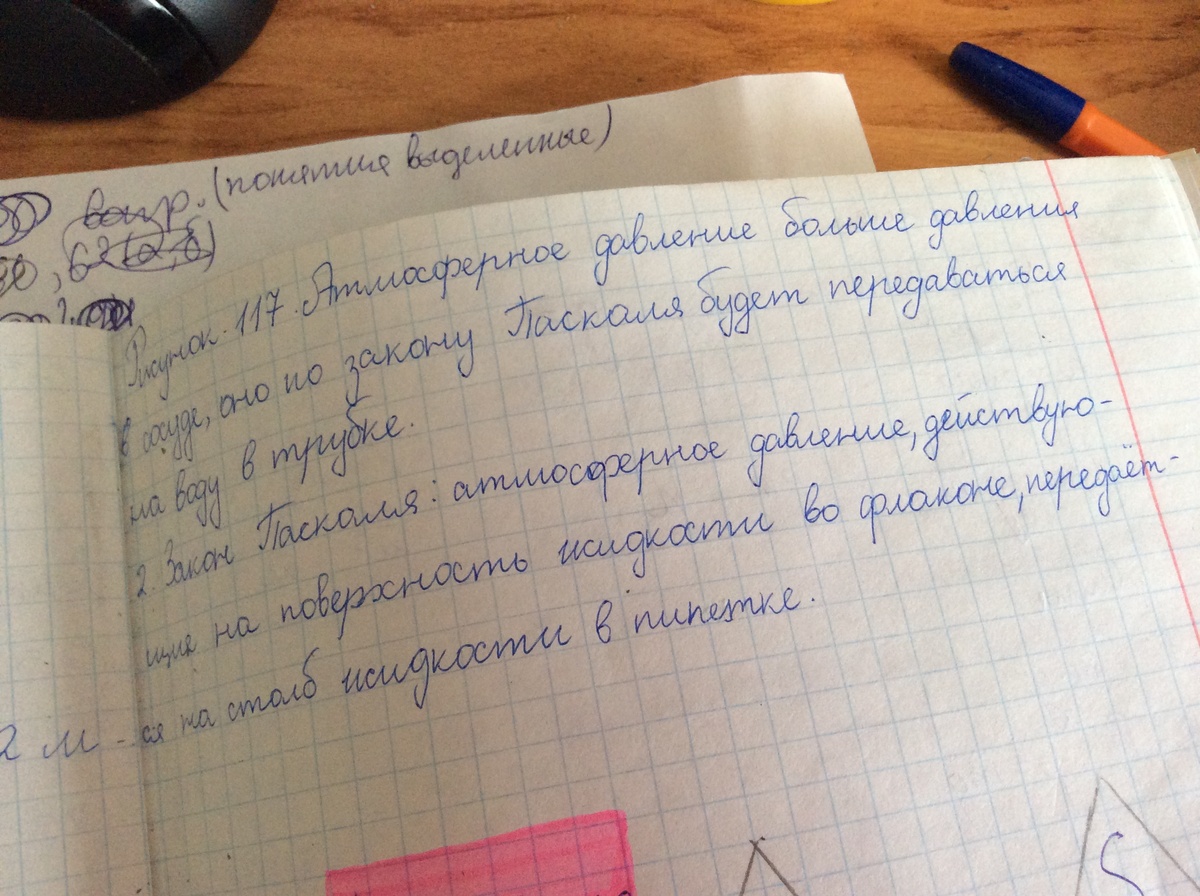 вопр. (понятия выделенные)
62 (а, б)
Рисунок. 117. Атмосферное давление больше давления
в сосуде, оно по закону Паскаля будет передаваться
на воду в трубке.
2. Закон Паскаля: атмосферное давление, действую-
щие на поверхность жидкости во флаконе, передаёт-
ся на столб жидкости в пипетке.
2 м
S